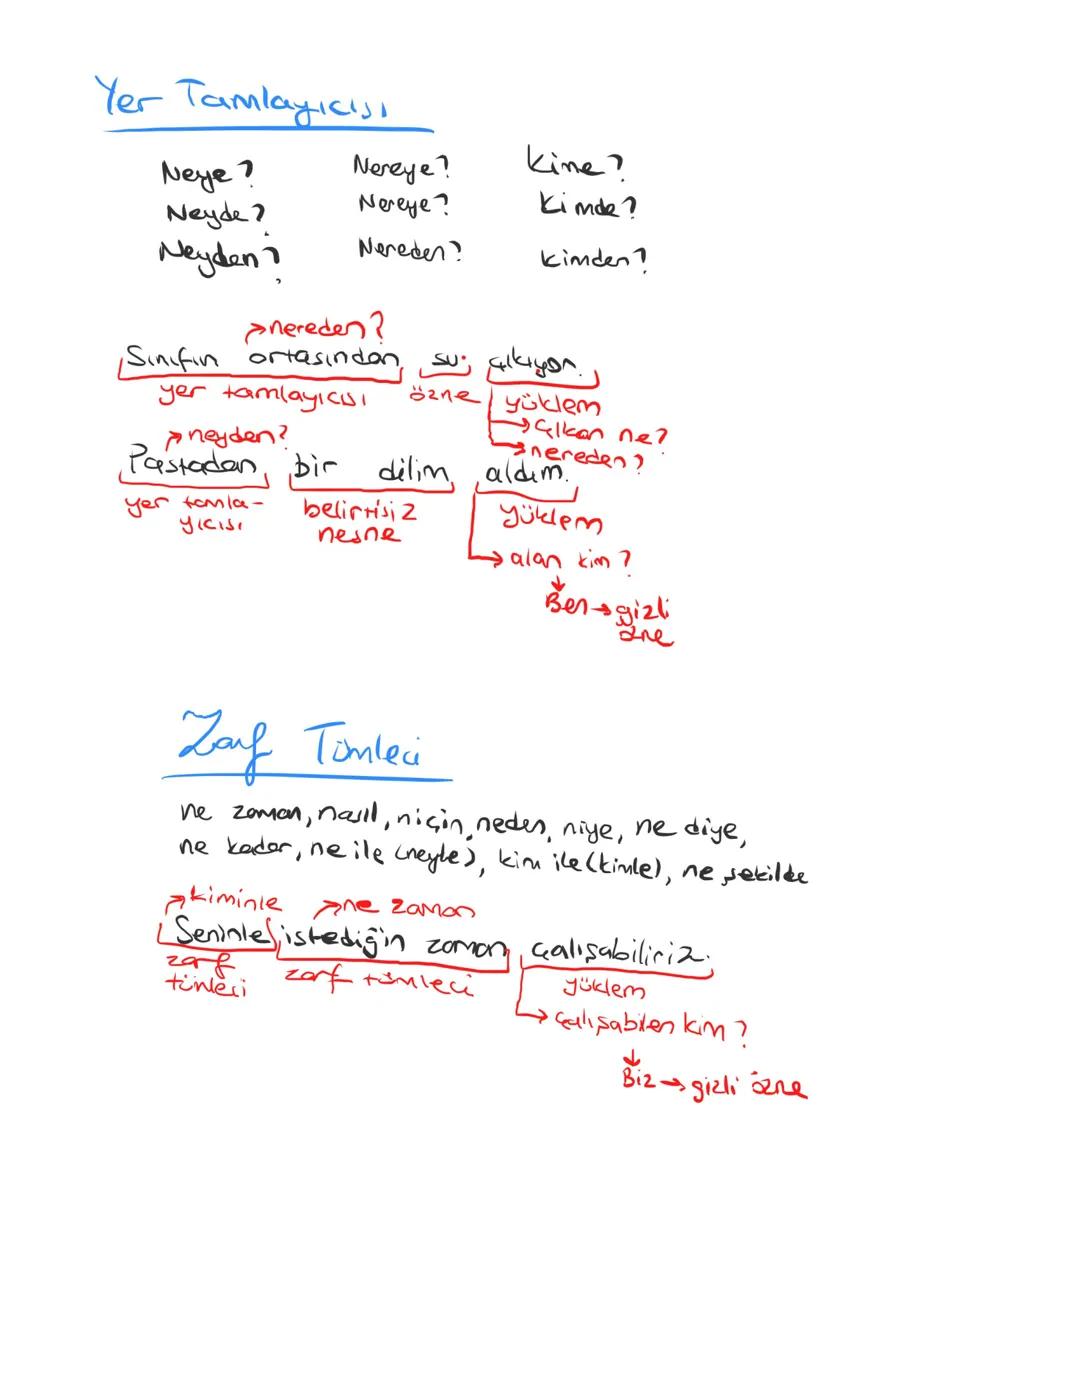 Yer Tamlayıcısı
Neye? Nereye? Kime?
Neyde? Nereye? Kimde?
Neyden? Nereden? Kimden?
→nereden?
Sınıfın ortasından su çıkıyor.
yer tamlayıcısı özne yüklem
→Çıkan ne?
→neyden? →nereden?
Pastadan bir dilim aldım.
yer tamla- belirtisiz yüklem
yıcısı nesne
→alan kim?
↓
Ben→gizli
özne
Zarf Tümleci
ne zaman, nasıl, niçin, neden, niye, ne diye,
ne kadar, ne ile (neyle), kim ile (kimle), ne şekilde
→kiminle →ne zaman
Seninle istediğin zaman çalışabiliriz.
zarf zarf tümleci yüklem
tümleci
→Çalışabilen kim?
↓
Biz→gizli özne